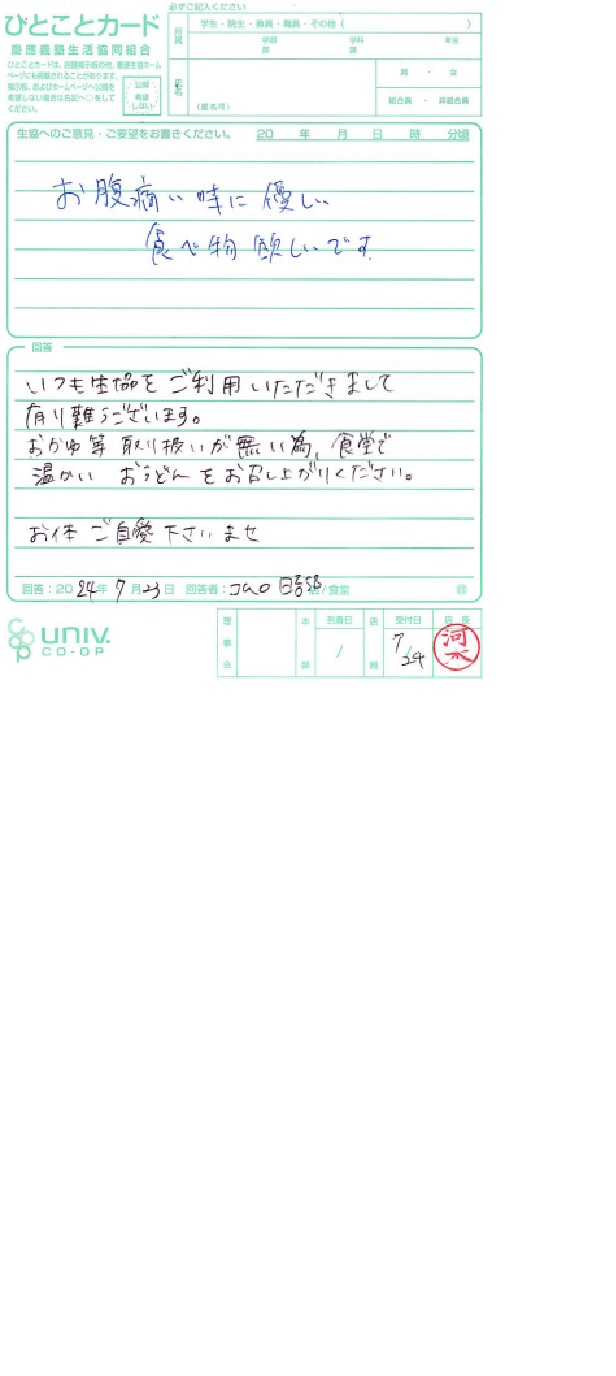 必ずご記入ください
ひとことカード
慶應義塾生活協同組合
ひとことカードは、店頭掲示板の他、慶應生協ホーム
ページにも掲載されることがあります。
掲示板、およびホームページへ公開を
希望しない場合は右記へ○をして
ください。
公開
希望
しない
所属
学生・院生・教員・職員・その他（ ）
学部 学科 年生
部 課
氏名
（匿名可）
男 ・ 女
組合員 ・ 非組合員
生協へのご意見・ご要望をお書きください。 20 年 月 日 時 分頃
お腹痛い時に優しい
食べ物欲しいです
回答
いつも生協をご利用いただきまして
有り難うございます。
おかゆ等取り扱いが無い為、食堂で
温かい おうどんをお召し上がりください。
お体ご自愛下さいませ
回答：2024年7月23日 回答者： 店/食堂 ㊞
UNIV.
CO-OP
理事会
本部
到着日
/
店舗
受付日
7/24
店長
河水